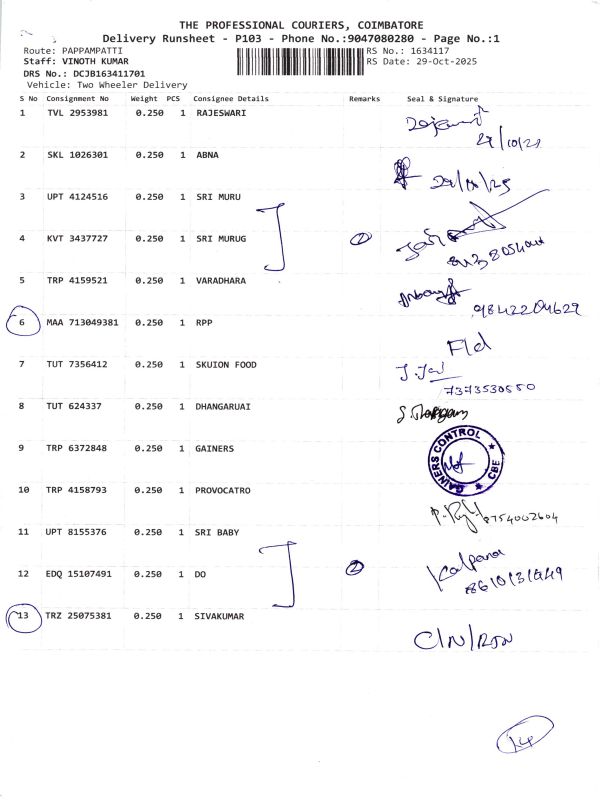 THE PROFESSIONAL COURIERS, COIMBATORE
Delivery Runsheet - P103 - Phone No.:9047080280 - Page No.:1
Route: PAPPAMPATTI RS No.: 1634117
Staff: VINOTH KUMAR RS Date: 29-Oct-2025
DRS No.: DCJB163411701
Vehicle: Two Wheeler Delivery
S No Consignment No Weight PCS Consignee Details Remarks Seal & Signature
1 TVL 2953981 0.250 1 RAJESWARI
2 SKL 1026301 0.250 1 ABNA
3 UPT 4124516 0.250 1 SRI MURU
4 KVT 3437727 0.250 1 SRI MURUG 2
5 TRP 4159521 0.250 1 VARADHARA
9842204629
6 MAA 713049381 0.250 1 RPP
7 TUT 7356412 0.250 1 SKUION FOOD
7373530550
8 TUT 624337 0.250 1 DHANGARUAI
9 TRP 6372848 0.250 1 GAINERS
GAINERS CONTROL CBE
10 TRP 4158793 0.250 1 PROVOCATRO
8754002604
11 UPT 8155376 0.250 1 SRI BABY
12 EDQ 15107491 0.250 1 DO 2 Kalpana
13 TRZ 25075381 0.250 1 SIVAKUMAR
C/N/RTN